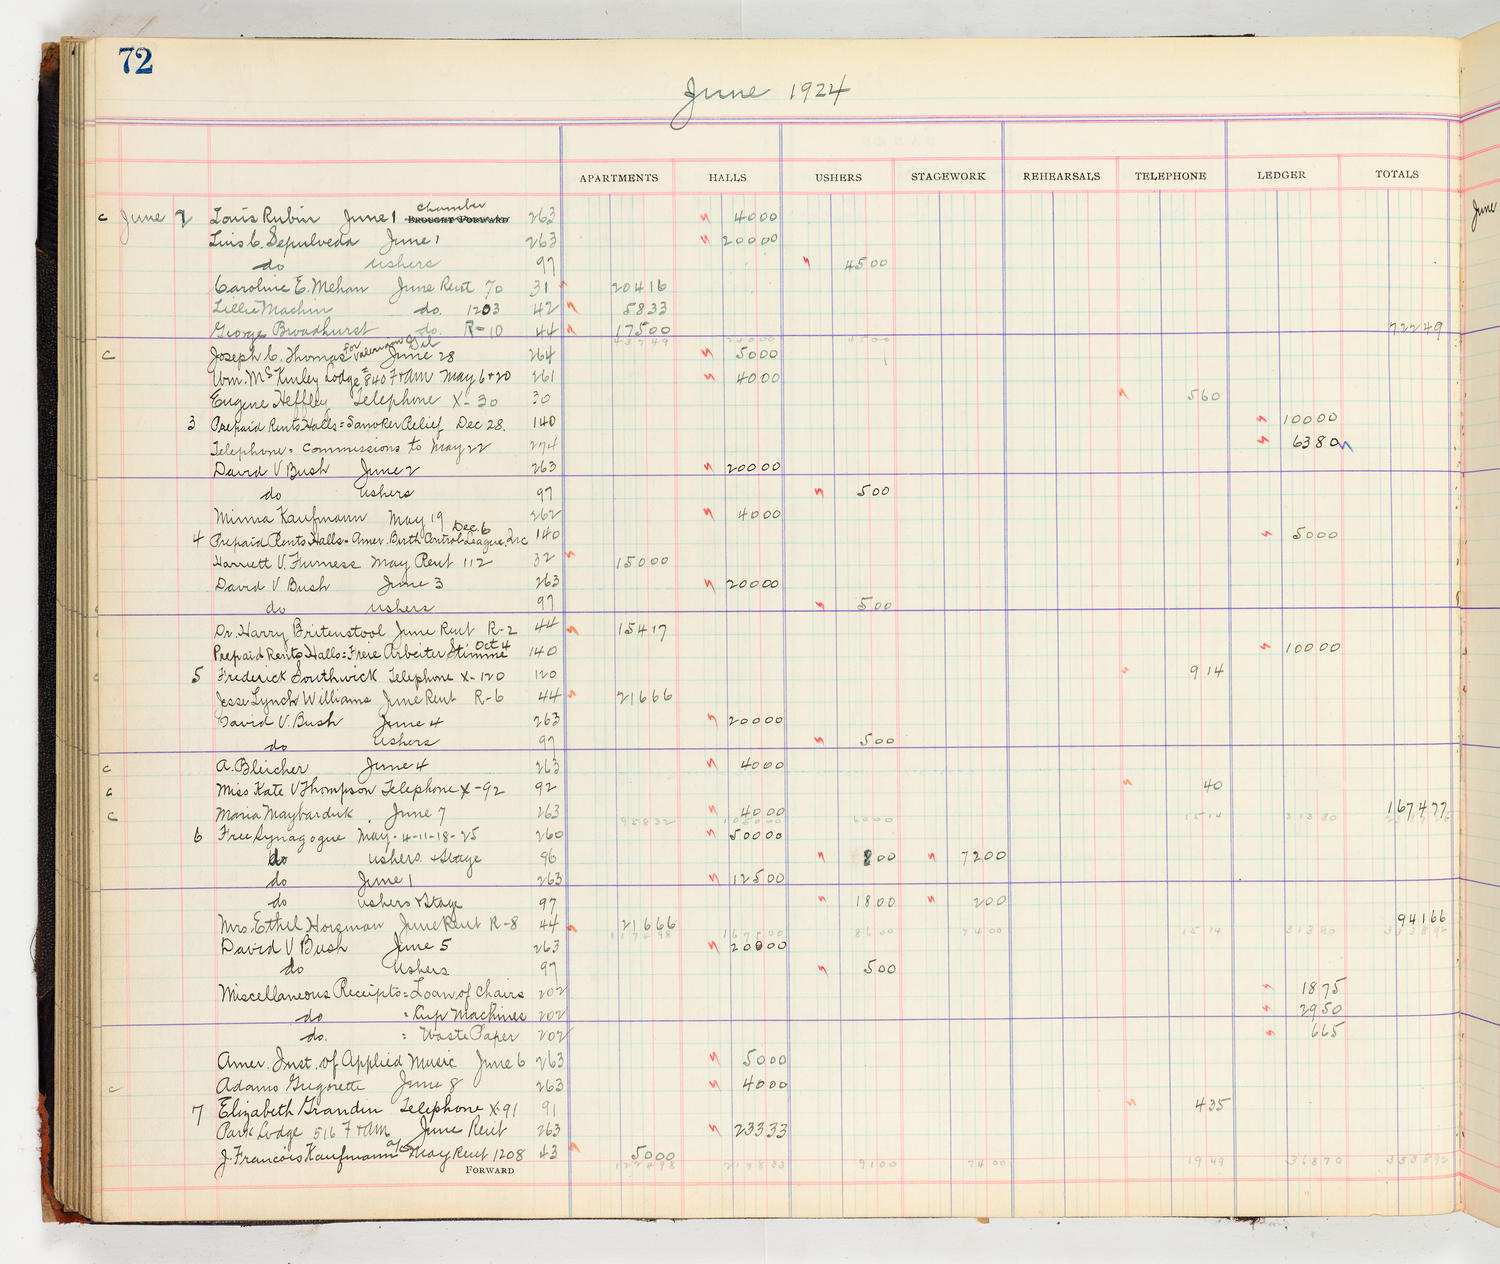 72
June 1924
APARTMENTS HALLS USHERS STAGEWORK REHEARSALS TELEPHONE LEDGER TOTALS
c June 2 Louis Rubin June 1 chamber BROUGHT FORWARD 263 4000
Luis C. Sepulveda June 1 263 20000
do ushers 97 4500
Caroline E. Mehan June Rent 70 31 20416
Lillie Machin do. 1203 42 5833
George Broadhurst do. R-10 44 17500 72249
c Joseph C. Thomas for June 28 264 5000
Wm. McKinley Lodge #840 F+AM May 6+20 261 4000
Eugene Heffley Telephone X-30 30 560
3 Prepaid Rents Halls= Relief Dec 28. 140 10000
Telephone= Commissions to May 22 274 6380
David V Bush June 2 263 20000
do ushers 97 500
Minna Kaufmann May 19 262 4000
4 Prepaid Rents Halls= Amer. Birth Control League, Inc Dec. 6 140 5000
Harriett V. Furness May Rent 112 32 15000
David V Bush June 3 263 20000
do ushers 97 500
Dr. Harry Britenstool June Rent R-2 44 15417
Prepaid Rents Halls= Freie Arbeiter Stimme Oct 4 140 10000
5 Frederick Southwick Telephone X-120 120 914
Jesse Lynch Williams June Rent R-6 44 21666
David V. Bush June 4 263 20000
do ushers 97 500
c A. Bleicher June 4 263 4000
c Miss Kate V Thompson Telephone X-92 92 40
c Maria June 7 263 4000 167477
6 Free Synagogue May-4-11-18-25 260 50000
do ushers +Stage 96 00 7200
do June 1 263 12500
do ushers +Stage 97 1800 200
Mrs. Ethel Horsman June Rent R-8 44 21666 94166
David V Bush June 5 263 20000
do Ushers 97 500
Miscellaneous Receipts= Loan of Chairs 202 1875
do = Cup Machines 202 2950
do. = Waste Paper 202 665
Amer. Inst. of Applied Music June 6 263 5000
c Adamo Gregorette June 8 263 4000
7 Elizabeth Grandin Telephone X-91 91 435
Park Lodge 516 F+AM June Rent 263 23333
J. Francois Kaufmann a/c May Rent 1208 43 5000
FORWARD 9100 7400 1949 36870
June